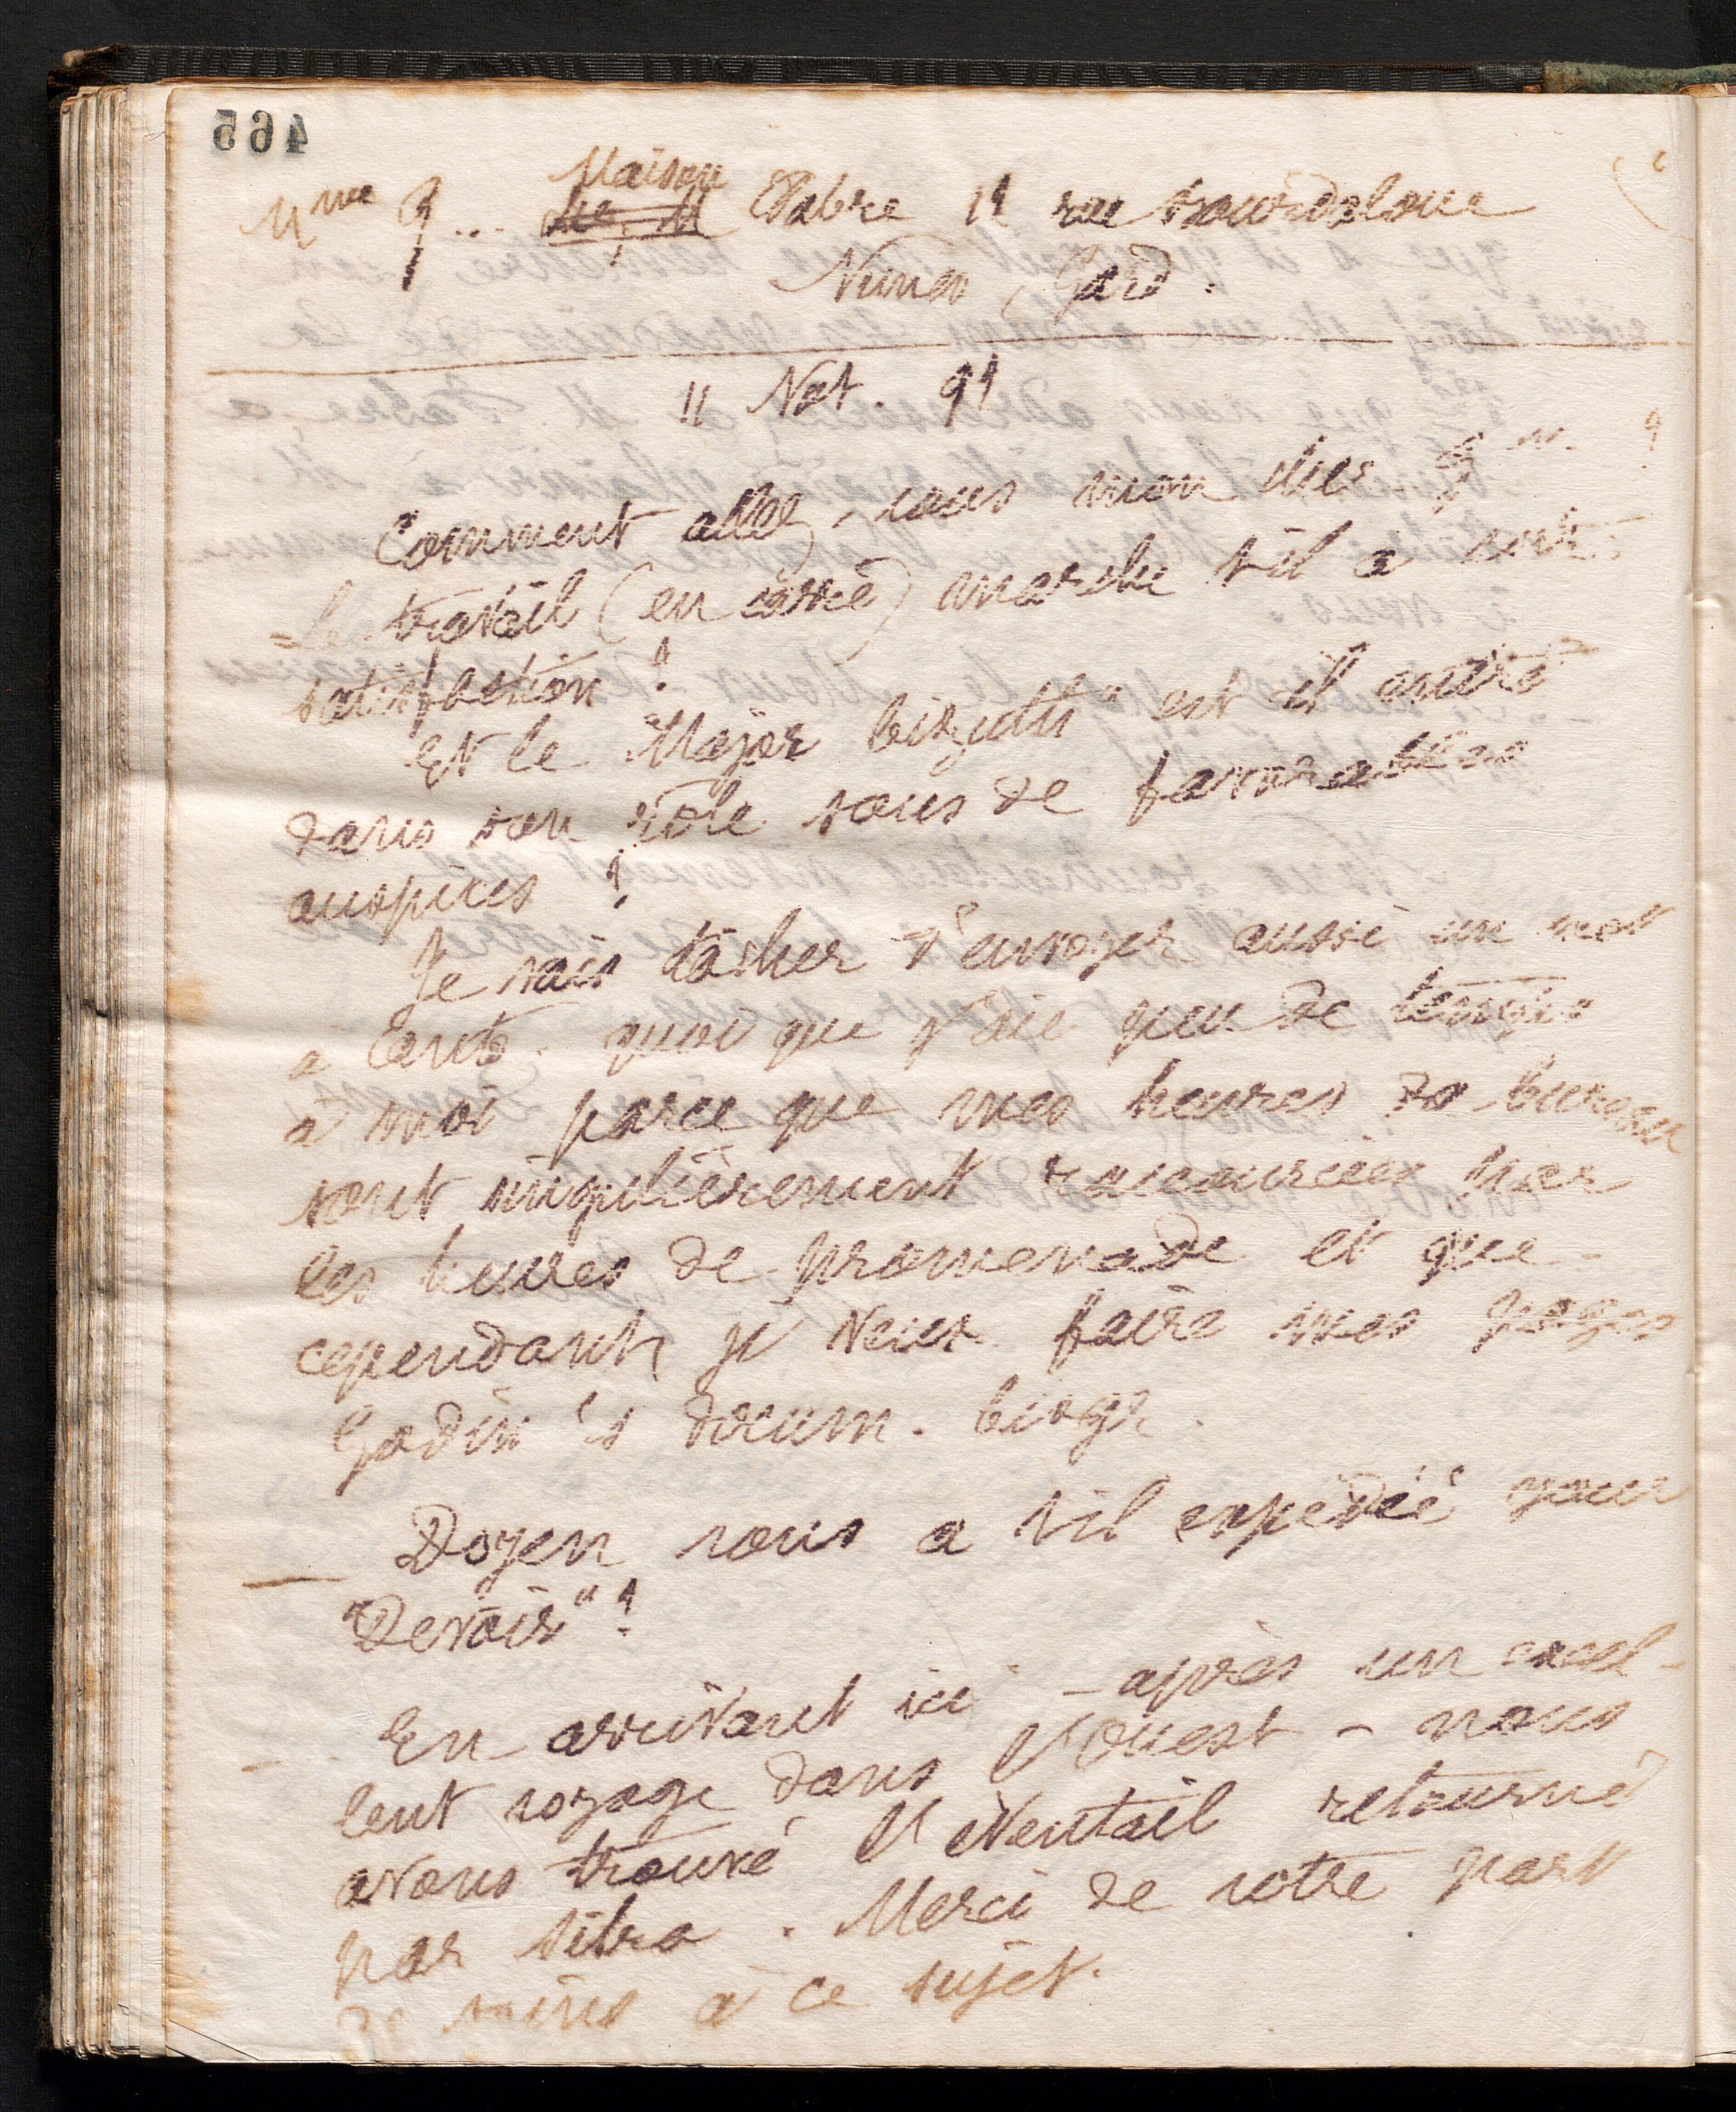 465
Mme P... Maison Fabre 14 rue Bourdaloue
Nimes, Gard.
11 Nov. 91
Comment allez-vous mon cher P
Le travail (en carré) marche t-il à votre
satisfaction ?
Et le "Major" est-il entré
dans son rôle sous de favorables
auspices ?
Je vais tâcher d'envoyer aussi un mot
à quoi que j'aie peu de temps
à moi parce que mes heures de bureau
sont singulièrement raccourcies par
les heures de promenade et que
cependant je veux faire mes pages
Godin's docum. biogr.
Doyen vous a t-il expédié pour
"Devoir" ?
En arrivant ici – après un excel-
lent voyage dans l'ouest – nous
avons trouvé l'éventail retourné
par . Merci de votre part
de soins à ce sujet.